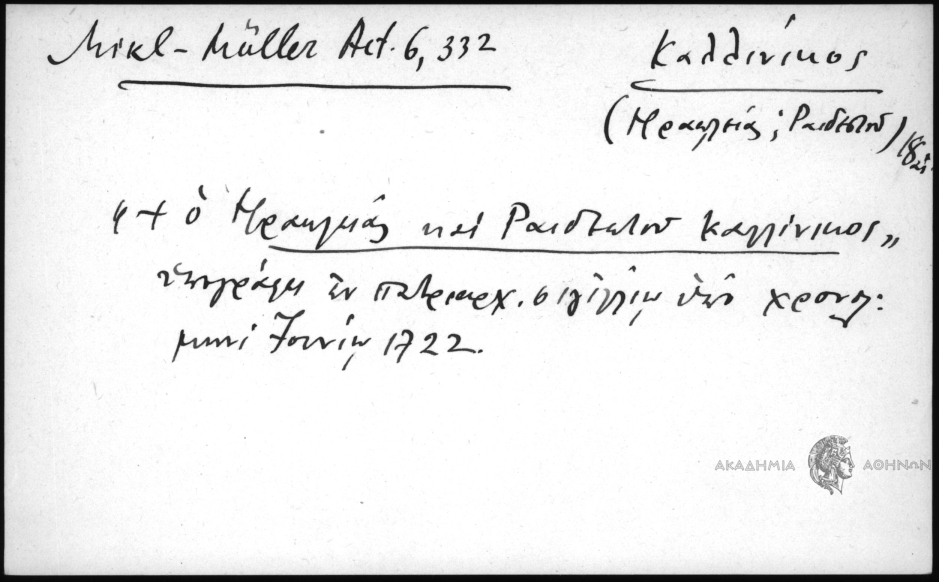 Mikl-Müller Act. 6, 332
Καλλίνικος
(Ηρακλείας ; Ραιδεστού)
18
"+ ὁ Ἡρακλείας καὶ Ραιδεστοῦ Καλλίνικος„
ὑπογράφει ἐν πατριαρχ. σιγιλλίῳ ὑπὸ χρονολ:
μηνὶ Ἰουνίῳ 1722.
ΑΚΑΔΗΜΙΑ ΑΘΗΝΩΝ